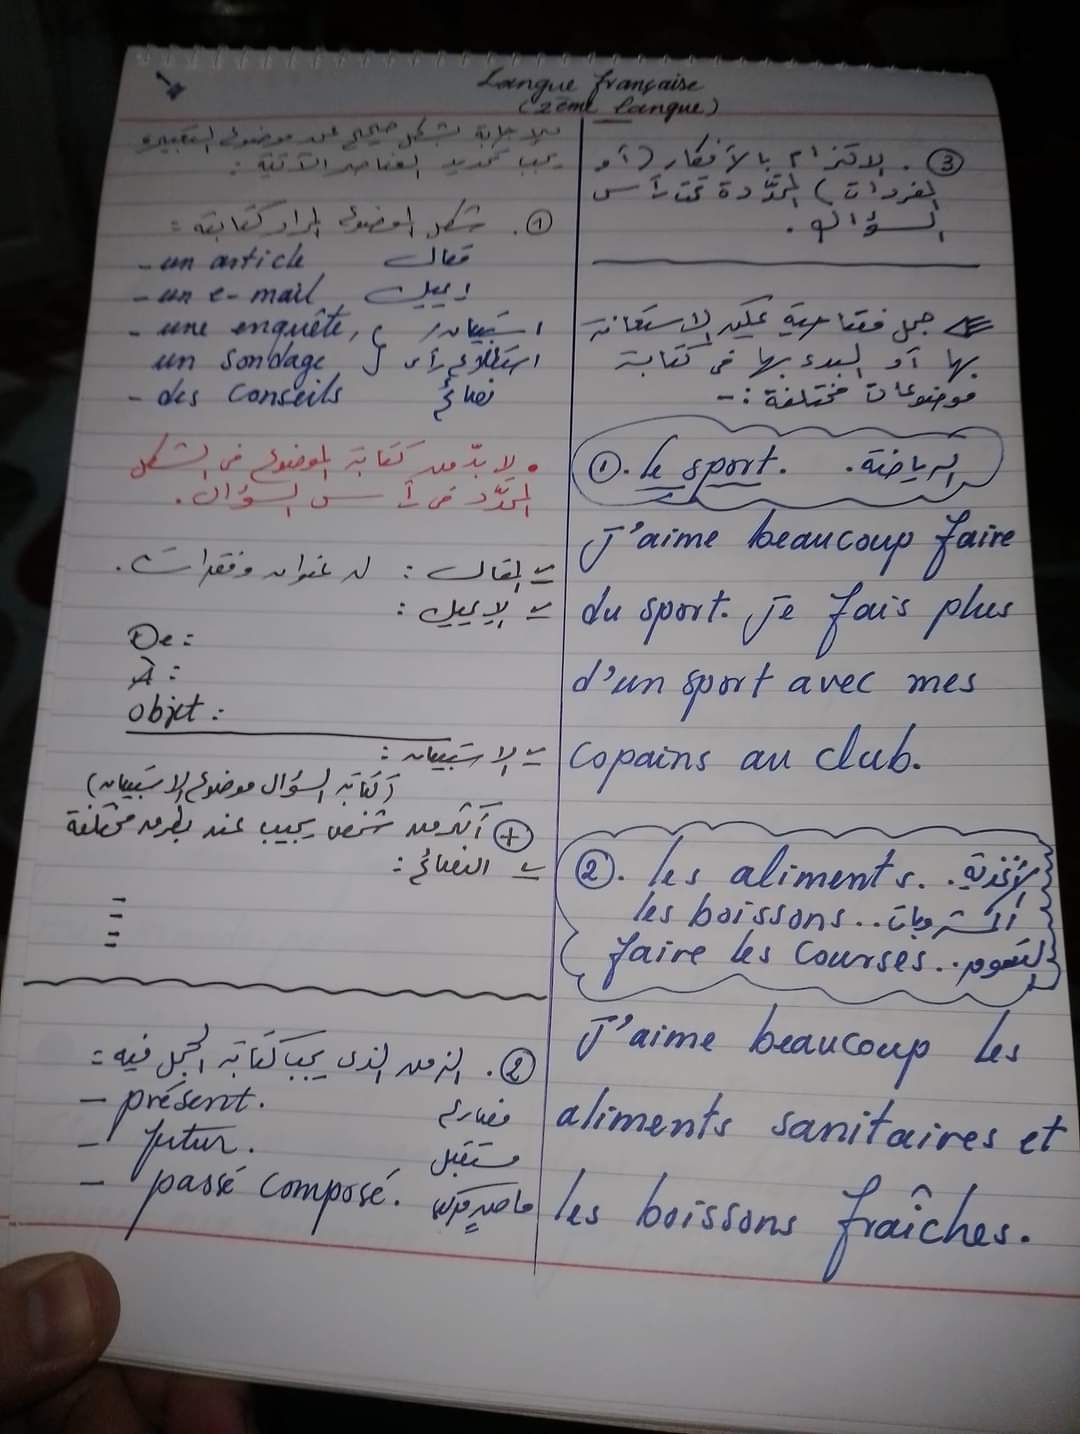 Langue française
(2ème Langue)
للإجابة بشكل صحيح عن موضوع التعبير
يجب تحديد العناصر الآتية :
①. شكل الموضوع المراد كتابته :
- un article مقال
- un e-mail إيميل
- une enquête, استبيان/
un sondage استطلاع رأى
- des conseils نصائح
• لابدّ من كتابة الموضوع فى الشكل
المحدَّد فى رأس السؤال.
المقال : له عنوان وفقرات.
الإيميل :
De :
À :
objet :
الاستبيان :
(كتابة السؤال موضوع الاستبيان)
+ أكثر من شخص يجيب عنه بطرق مختلفة
النصائح :
-
-
-
②. الزمن الذى يجب كتابة الجمل فيه :
- présent. مضارع
- futur. مستقبل
- passé composé. ماضى مركب
③. الالتزام بالأفكار (أو
المفردات) المحدَّدة تحت رأس
السؤال.
جمل افتتاحية يمكن الاستعانة
بها أو البدء بها فى كتابة
موضوعات مختلفة :-
①. le sport. الرياضة.
J'aime beaucoup faire
du sport. je fais plus
d'un sport avec mes
copains au club.
②. les aliments.. الأغذية
les boissons.. المشروبات
faire les courses.. التسوق
J'aime beaucoup les
aliments sanitaires et
les boissons fraîches.